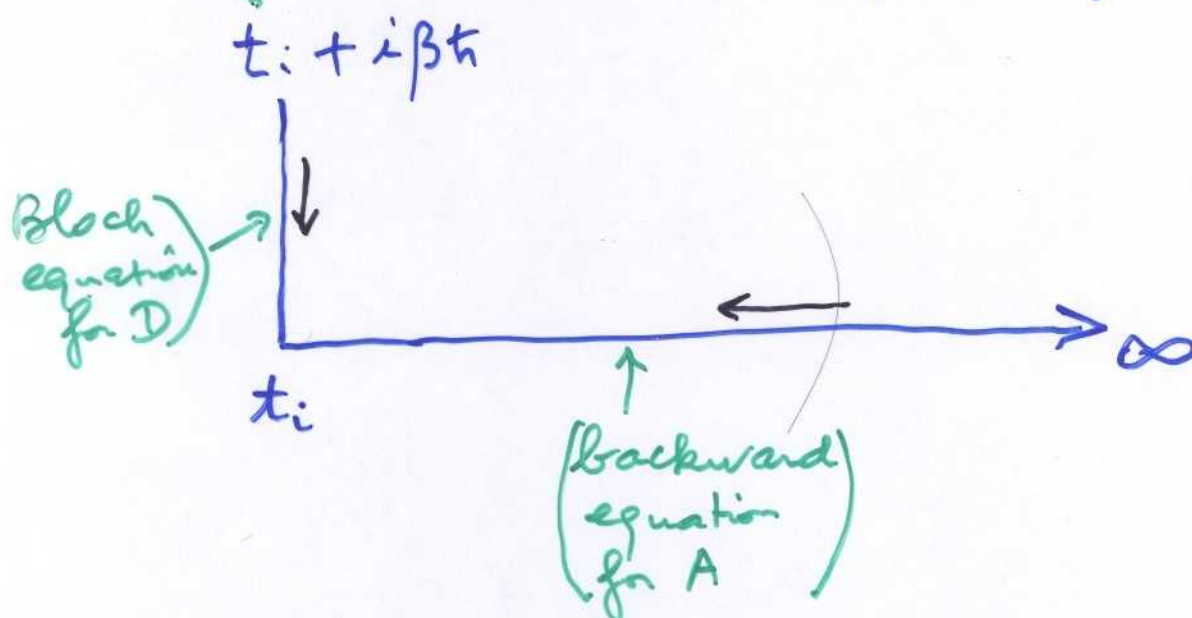 t_i + iβħ
Bloch
equation
for D)
t_i
∞
(backward)
equation
for A